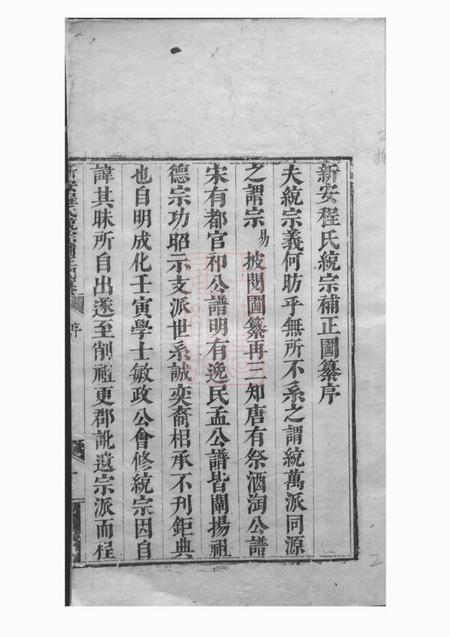 新安程氏統宗補正圖纂序
夫統宗義何昉乎無所不系之謂統萬派同源
之謂宗易披閱圖纂再三知唐有祭酒淘公譜
宋有都官祁公譜明有逸民孟公譜皆闡揚祖
德宗功昭示支派世系誠奕裔相承不刋鉅典
也自明成化壬寅學士敏政公會修統宗因自
諱其昧所自出遂至削祖更郡訛遺宗派而程
新安程氏統宗補正圖纂 序